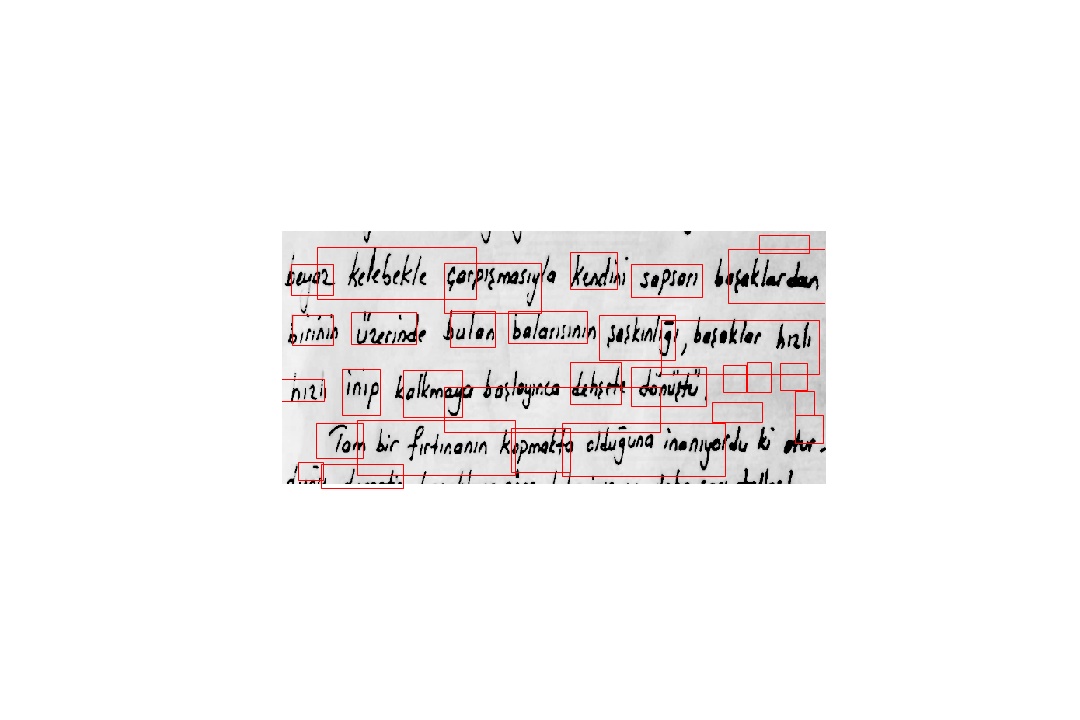 beyaz kelebekle çarpışmasıyla kendini sapsarı başaklardan
birinin üzerinde bulan balarısının şaşkınlığı, başaklar hızlı
hızlı inip kalkmaya başlayınca dehşete dönüştü.
Tam bir fırtınanın kopmakta olduğuna inanıyordu ki otur-